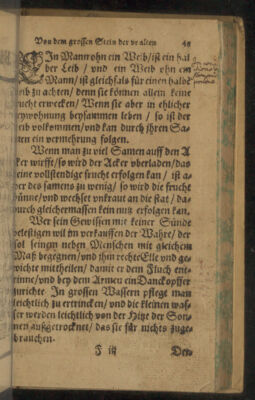 Von dem grossen Stein der uralten 49
EIn Mann ohn ein Weib / ist ein hal
ber Leib / und ein Weib ohn ein
Mann / ist gleichfals für einen halbē
eib zu achten / denn sie können allein keine
rucht erwecken / Wenn sie aber in ehlicher
eywohnung beysammen leben / so ist der
eib vollkommen / und kan durch ihren Sa-
en ein vermehrung folgen.
Wenn man zu viel Samen auff den A
ker wirfft / so wird der Acker überladen / das
eine vollstendige frucht erfolgen kan / ist a-
ber des samens zu wenig / so wird die frucht
ünne / und wechset unkraut an die stat / da-
urch gleichermassen kein nutz erfolgen kan.
Wer sein Gewissen mit keiner Sünde
beletstigen wil im verkauffen der Wahre / der
sol seinem neben Menschen mit gleichem
Maß begegnen / und ihm rechte Elle und ge-
wichte mittheilen / damit er dem Fluch ent-
rinne / und bey dem Armen ein Danckopffer
nrichte In grossen Wassern pflegt man
leichtlich zu ertrincken / und die kleinen was-
ser werden leichtlich von der Hitze der Son-
nen außgetrocknet / das sie für nichts zuge-
brauchen.
F iij Der-